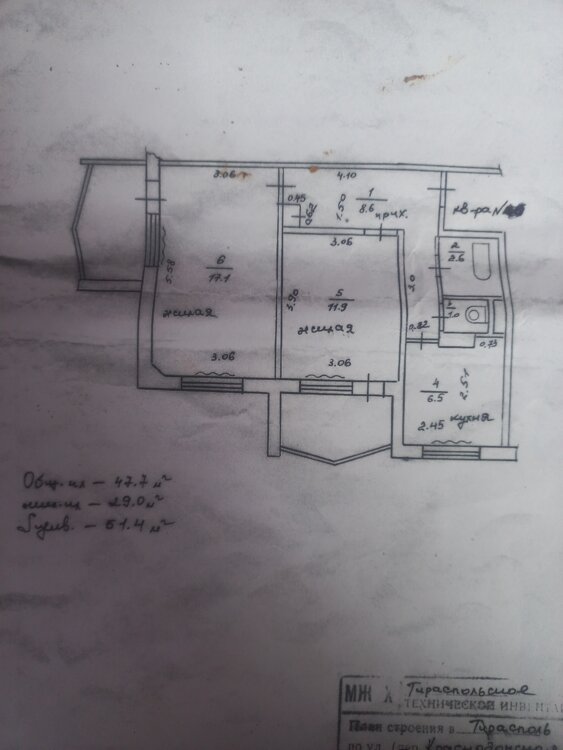 3.06
4.10
0.45
1
8.6
прих.
кв-ра №
3.06
2
2.6
5.58
6
17.1
5
11.9
3.90
жилая
жилая
1.0
0.82
0.73
3.06
3.06
4
6.5
2.57
2.45
кухня
Общ. пл – 47.7 м²
жил. пл – 29.0 м²
– 51.4 м²
МЖ Х
Тираспольское
ТЕХНИЧЕСКОЙ ИНВЕНТА
План строения в Тирасполь
по ул.